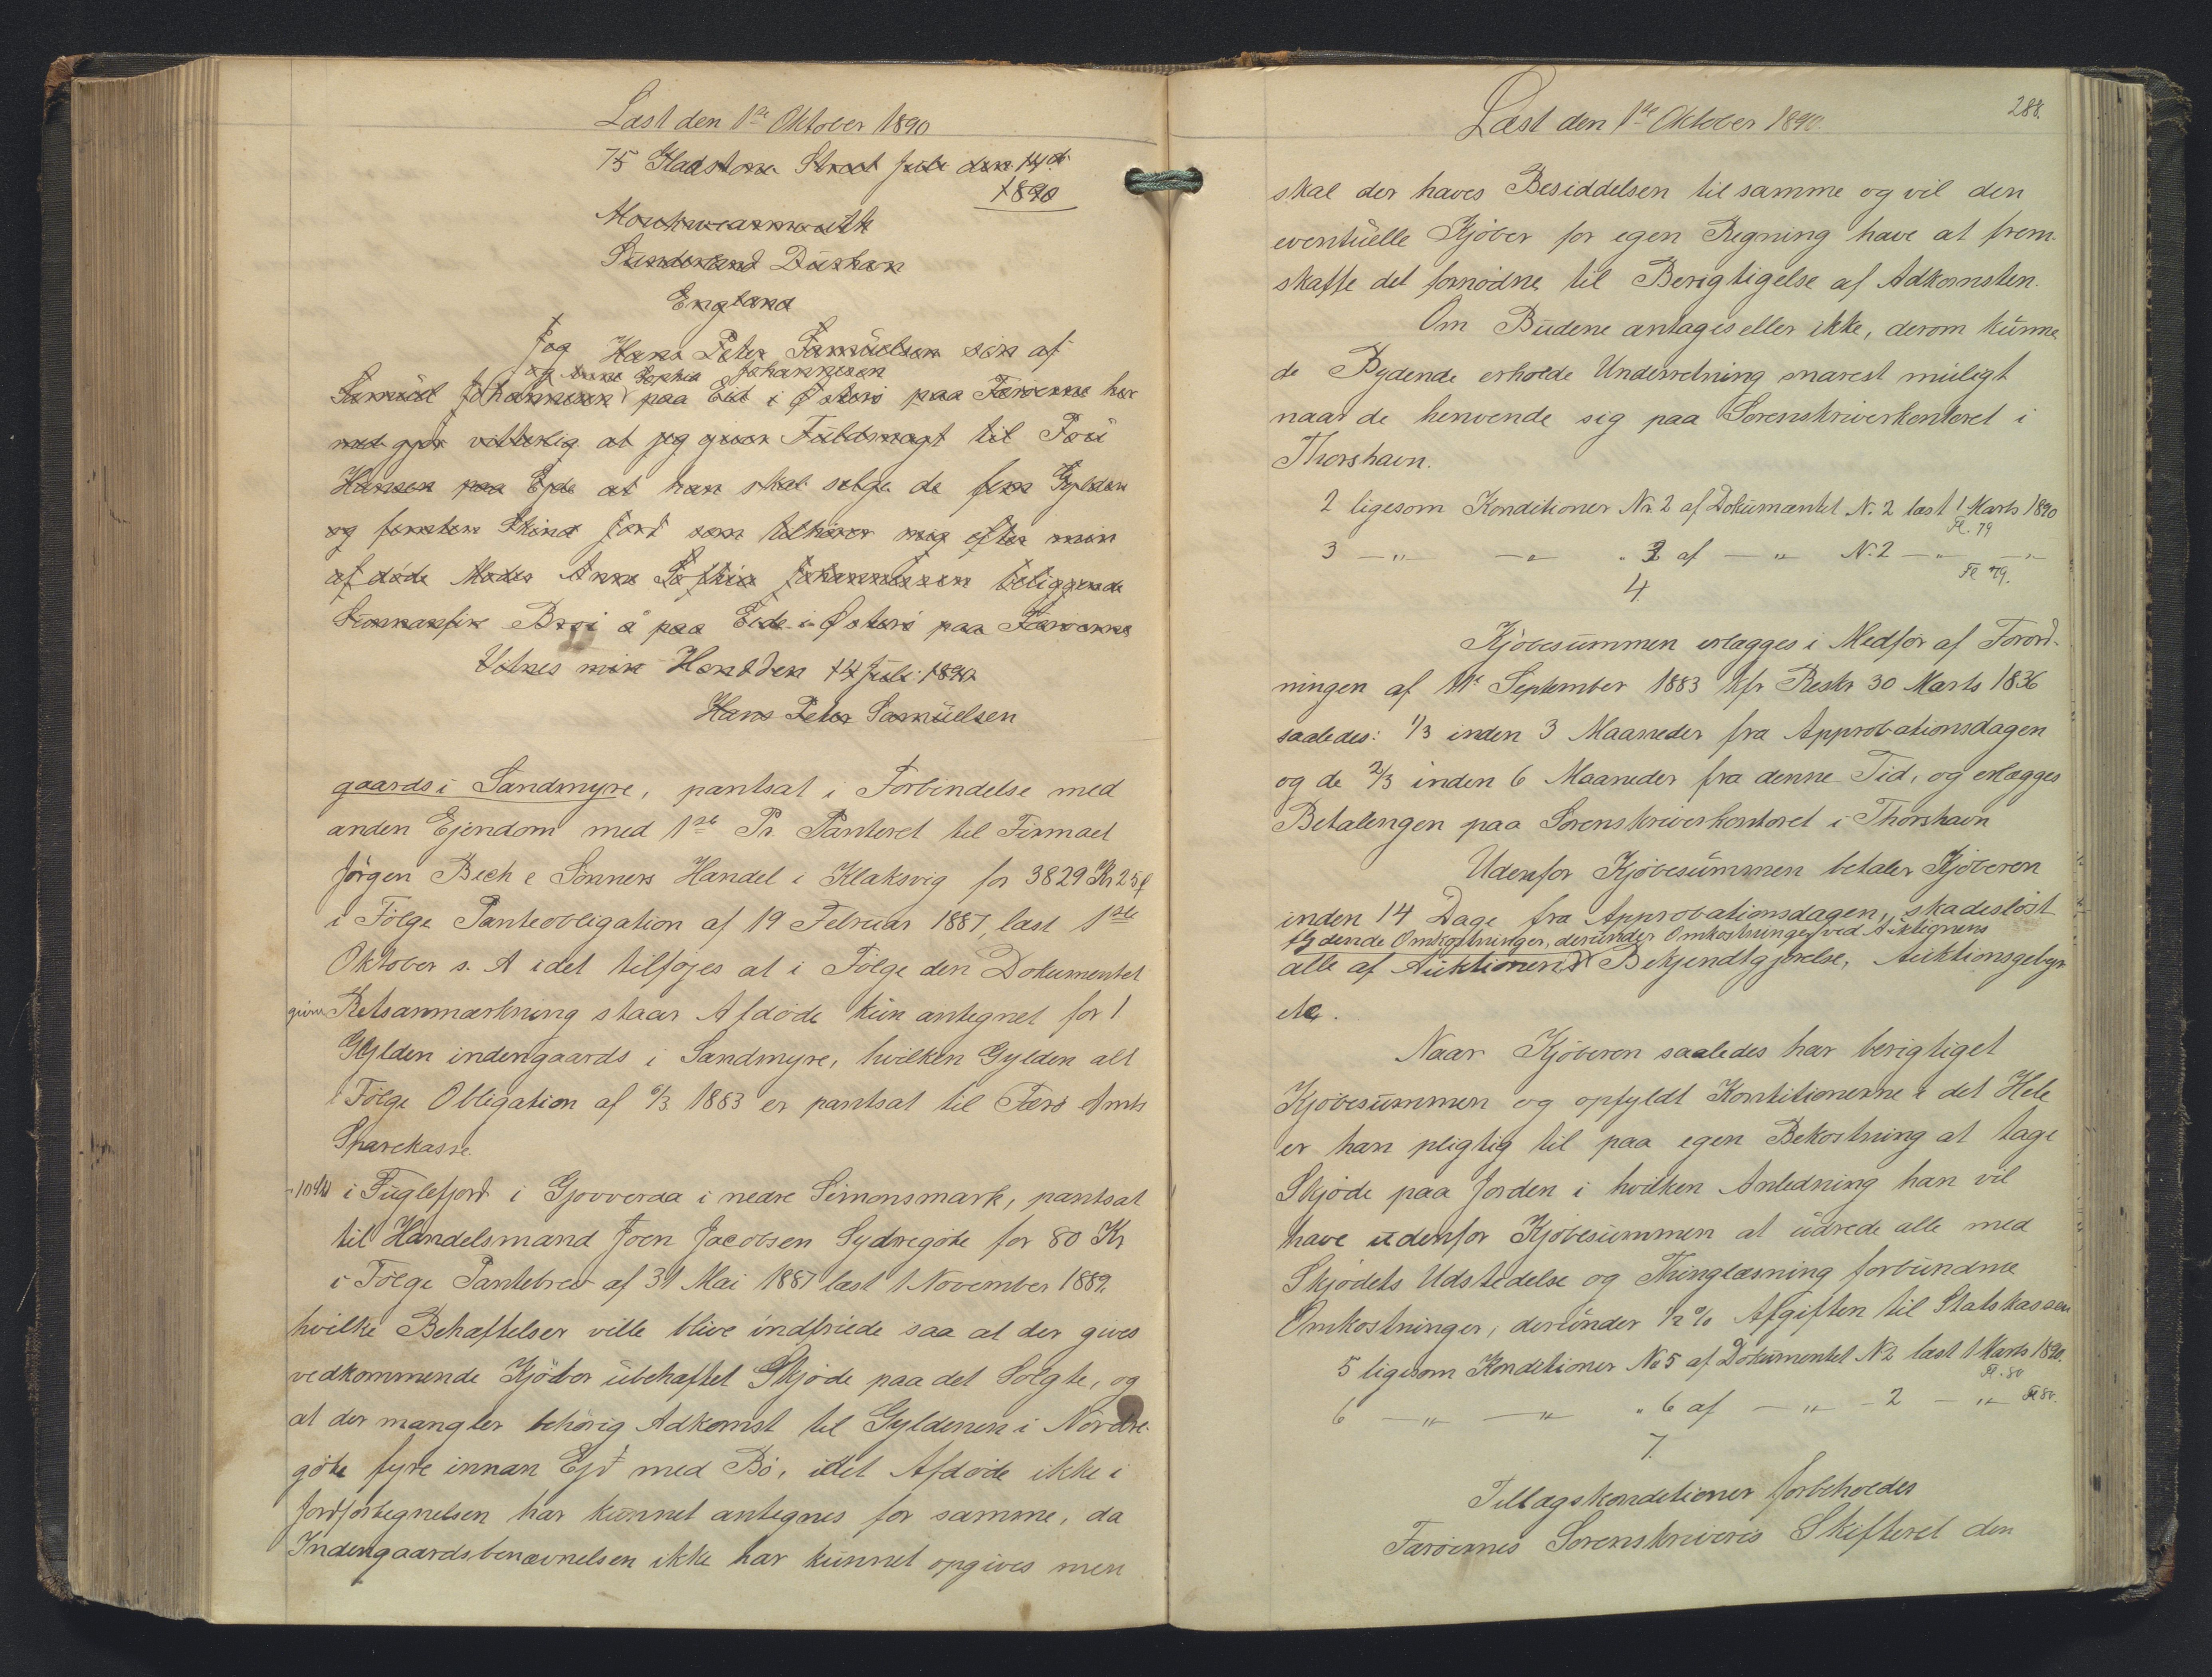 Læst den 1ste Oktober 1890
75 Gladstone Street Juli den 14de
1890
Monkwearmouth
Sunderland Durhan
England
Jeg Hans Peter Samüelsen sön af
og Anne Sophia Johannesen
Samüel Johannesen paa Eid i Østerö paa Færöerne her
med gjör vitterlig at jeg giver Füldmagt til Poü
Hansen paa Ejde at han skal selge de fem Gylden
og femten Skind Jord som tilhörer mig efter min
afdöde Moder Anne Sofhia Johannesen beliggende
Brei å paa Eide i Østerö paa Færöerne
Vitnes min Hond den 14 Juli 1890
Hans Peter Samüelsen
gaards i Sandmyre, pantsat i Forbindelse med
anden Ejendom med 1ste Pr. Panteret til Firmaet
Jörgen Bech & Sönners Handel i Klaksvig for 3829 Kr 25 ø
i Fölge Panteobligation af 19 Februar 1887, læst 1ste
Oktober s. A idet tilföjes at i Fölge den Dokumentet
givne Retsanmærkning staar Afdöde kün antegnet for 1
Gylden indengaards i Sandmyre, hvilken Gylden alt
i Fölge Obligation af 6/3 1883 er pantsat til Færö Amts
Sparekasse.
i Füglefjord i Gjovveraa i nedre Simonsmark, pantsat
til Handelsmand Joen Jacobsen Sydregöte for 80 Kr
i Fölge Pantebrev af 31 Mai 1887 læst 1 November 1889,
hvilke Behæftelser ville blive indfriede saa at der gives
vedkommende Kjöber übehæftet Skjöde paa det Solgte, og
at der mangler behörig Adkomst til Gyldenen i Nordre-
göte fyre innan Ejd med Bö, idet Afdöde ikke i
Jordfortegnelsen har künnet antegnes for samme, da
Indengaardsbenævnelsen ikke har künnet opgives men
Læst den 1ste Oktober 1890.
288.
skal der haves Besiddelsen til samme og vil den
eventüelle Kjöber for egen Regning have at frem-
skaffe det fornödne til Berigtigelse af Adkomsten.
Om Büdene antages eller ikke, derom künne
de Bydende erholde Underretning snarest müligt
naar de henvende sig paa Sorenskriverkontoret i
Thorshavn.
2 ligesom Konditioner Nr. 2 af Dokümentet N. 2 læst 1 Marts 1890
Fl. 79
3 — " — " — " 3 af — " N. 2 — " — " —
Fl 79.
4.
Kjöbesümmen erlægges i Medför af Forord-
ningen af 11te September 1883 kfr Reskr 30 Marts 1836
saaledes: 1/3 inden 3 Maaneder fra Approbationsdagen
og de 2/3 inden 6 Maaneder fra denne Tid, og erlægges
Betalingen paa Sorenskriverkontoret i Thorshavn
Udenfor Kjöbesümmen betaler Kjöberen
inden 14 Dage fra Approbationsdagen, skadeslöst
flydende Omkostninger, deründer Omkostninger ved Aüktionens
alle af Aüktionen Bekjendtgjörelse, Aüktionsgebyr
etc.
Naar Kjöberen saaledes har berigtiget
Kjöbesümmen og opfyldt Kontitionerne i det Hele
er han pligtig til paa egen Bekostning at tage
Skjöde paa Jorden i hvilken Anledning han vil
have üdenfor Kjöbesümmen at üdrede alle med
Skjödets Udstedelse og Thinglæsning forbündne
Omkostninger, deründer 1/2 % Afgiften til Statskassen
5 ligesom Konditioner No 5 af Dokümentet N 2 læst 1 Marts 1890.
Fl. 80
6 — " — " — " 6 af — " — 2 — " — Fl 80.
7.
Tillægskonditioner forbeholdes
Færöernes Sorenskriveris Skifteret den